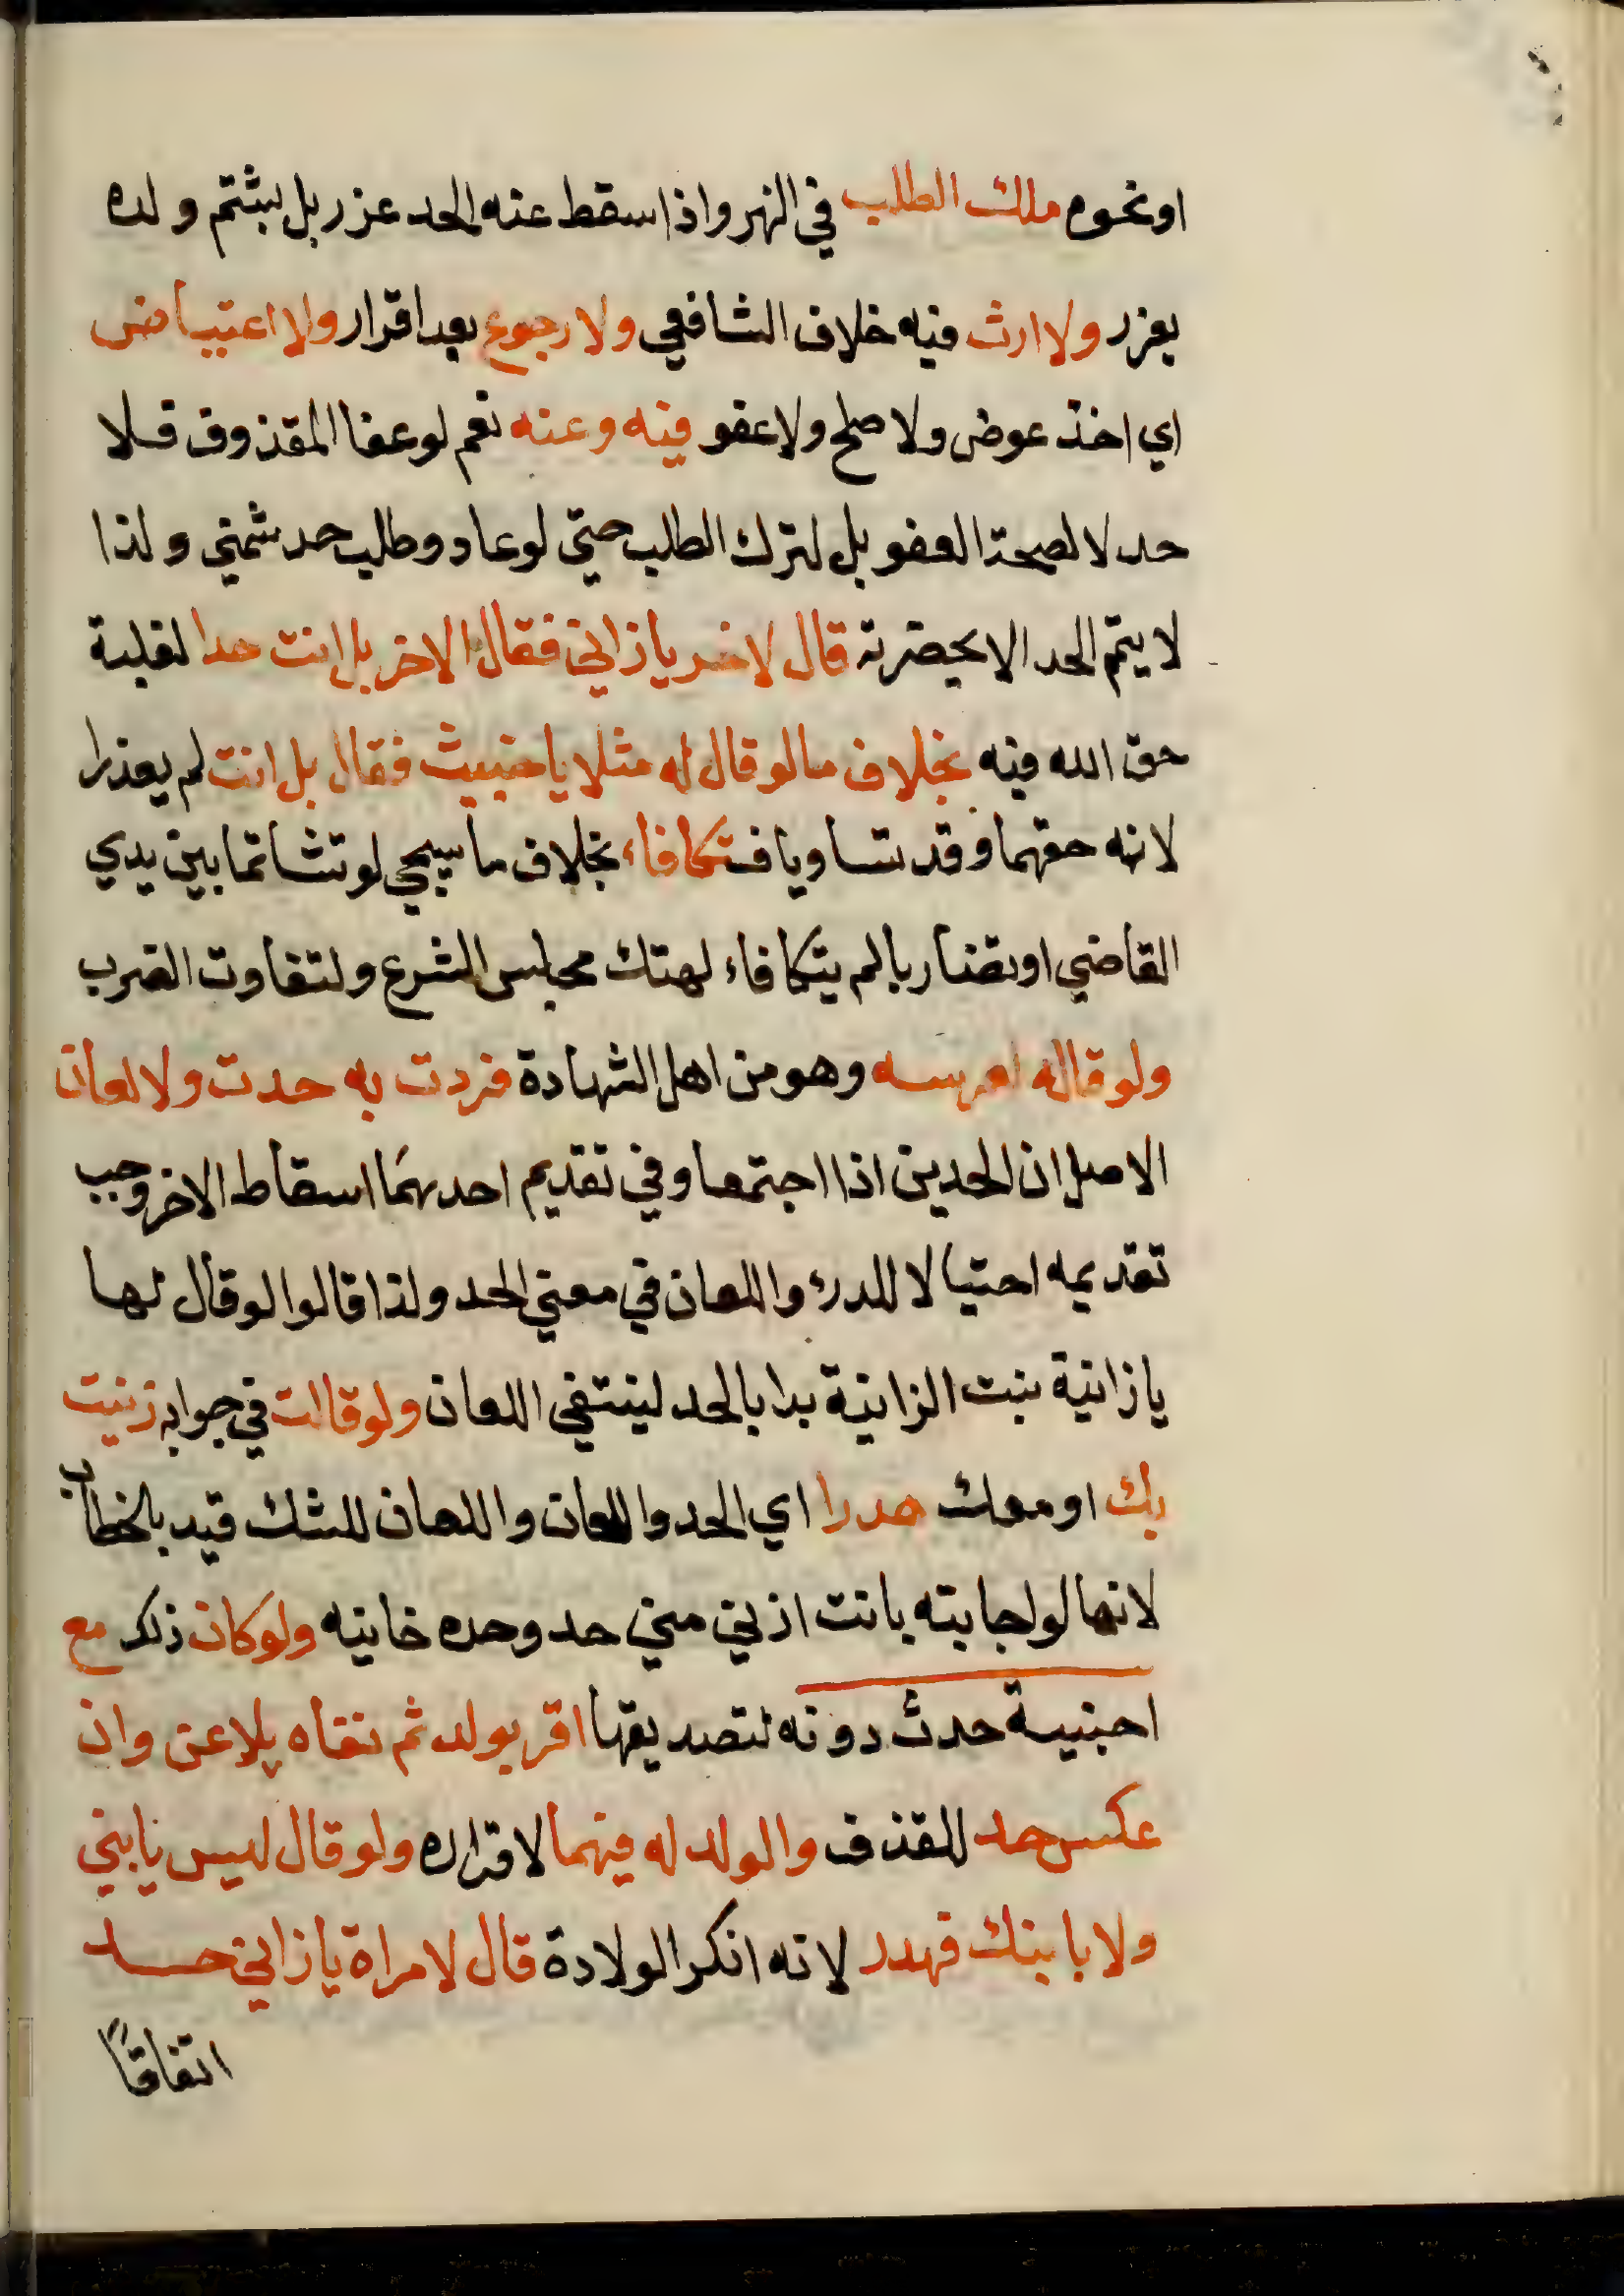 او نحوه ملك الطلب في النهر واذا سقط عنه الحد عزر بل بشتم ولده
يعزر ولا ارث فيه خلاف الشافعي ولا رجوع بعد اقرار ولا اعتياض
اي اخذ عوض ولا صلح ولا عفو فيه وعنه نعم لو عفا المقذوف فلا
حد لا لصحة العفو بل لترك الطلب حتي لو عاد وطلب حد شمني ولذا
لا يتم الحد الا بحضرته قال لاخر يا زاني فقال الاخر بل انت حدا لغلبة
حق الله فيه بخلاف ما لو قال له مثلا يا خبيث فقال بل انت لم يعذرا
لانه حقهما وقد تساويا فتكافاء بخلاف ما سيجي لو تشاتما بين يدي
القاضي او تضاربا لم يتكافاء لهتك مجلس الشرع ولتفاوت الضرب
ولو قاله لعرسه وهو من اهل الشهادة فردت به حدت ولا لعان
الاصل ان الحدين اذا اجتمعا وفي تقديم احدهما اسقاط الاخر وجب
تقديمه احتيالا للدرء واللعان في معني الحد ولذا قالوا لو قال لها
يا زانية بنت الزانية بدا بالحد لينتفي اللعان ولو قالت في جوابه زنيت
بك او معك هدرا اي الحد واللعان واللعان للشك قيد بالخطاب
لانها لو اجابته بانت ازني مني حد وحده خانيه ولو كان ذلك مع
اجنبية حدث دونه لتصديقها اقر بولد ثم نفاه يلاعن وان
عكس حد للقذف والولد له فيهما لاقراره ولو قال ليس بابني
ولا بابنك فهدر لانه انكر الولادة قال لامراة يا زاني حد
اتفاقًا